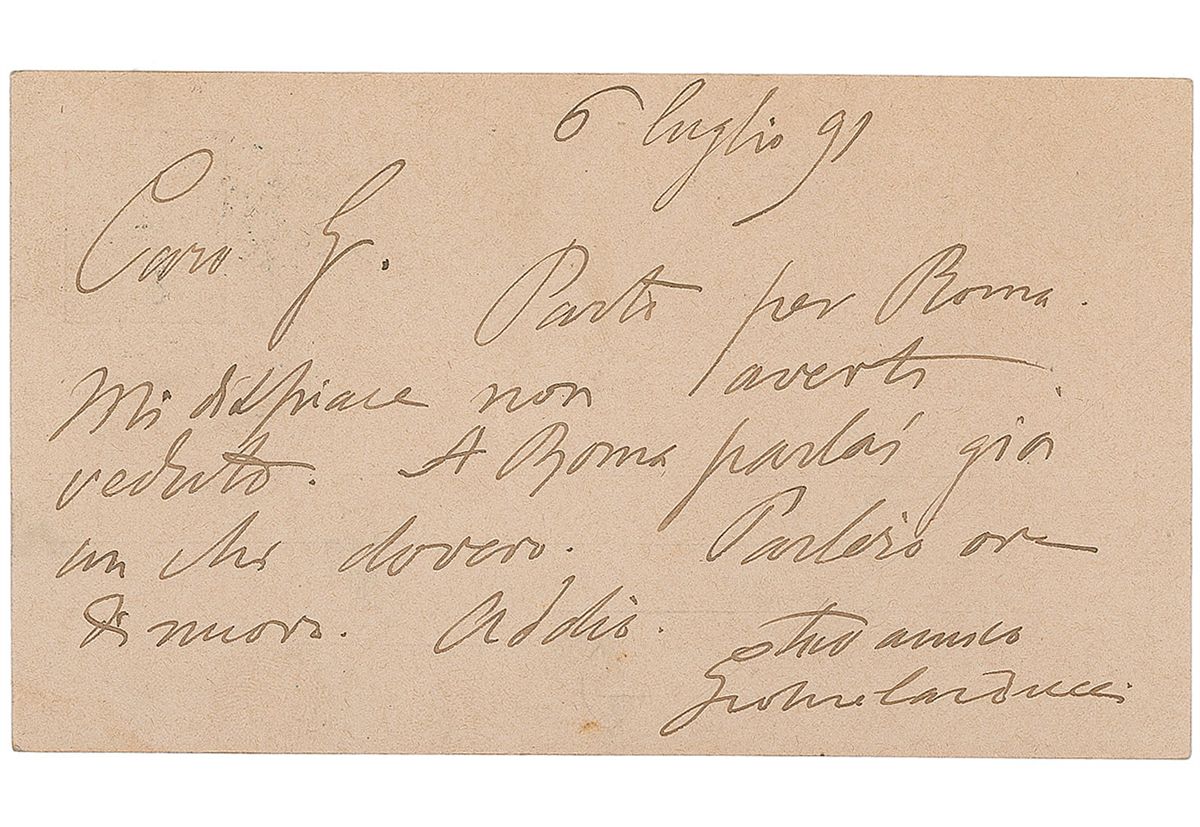 6 luglio 91
Caro G. Parto per Roma.
Mi dispiace non averti
veduto. A Roma parlai già
con chi dovevo. Parlerò ora
di nuovo. Addio.
tuo amico
Giosue Carducci